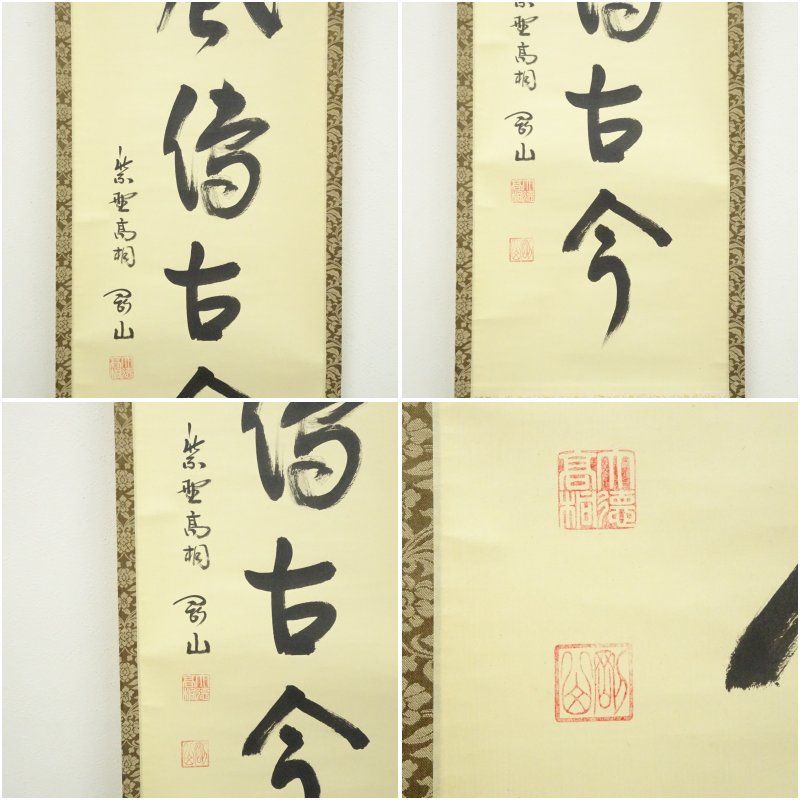 風傳古今
紫野高桐 剛山
傳古今
紫野高桐 剛山
傳古今
紫野高桐 剛山
大德高桐
剛山